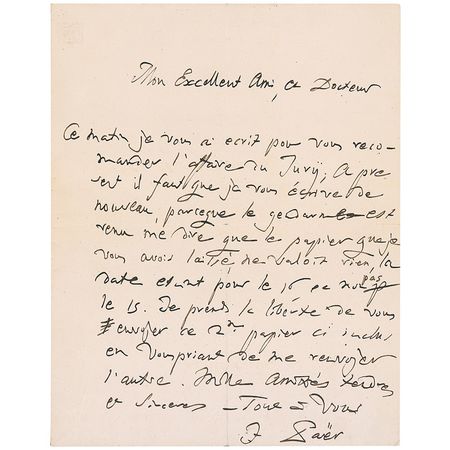 Mon Excellent Ami, et Docteur
Ce matin je vous ai ecrit pour vous reco-
mander l'affaire du Jury; A pre
sent il faut que je vous écrive de
nouveau, parceque le gedarme est
venu me dire que le papier que je
vous avois laissé ne valoit rien, la
date etant pour le 16 et non pas
le 15. Je prends la liberté de vous
envojer ce 2me papier ci inclus
en vous priant de me renvojer
l'autre. Mille Amitiés tendres
et sinceres _ Tout à Vous
F Paër